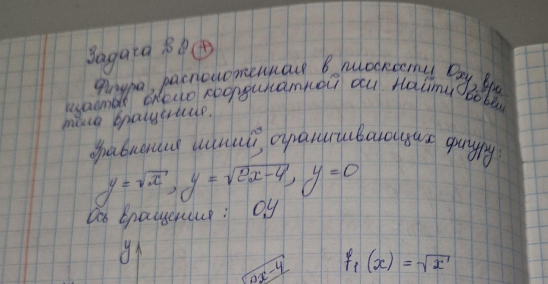 Задача 28 +
Фигура, расположенная в плоскости Oxy, вра-
щается около координатной оси. Найти объем
тела вращения.
Уравнения линий, ограничивающих фигуру:
y = √x, y = √2x-4, y = 0
Ось вращения: OY
y
√2x-4 f₁(x) = √x